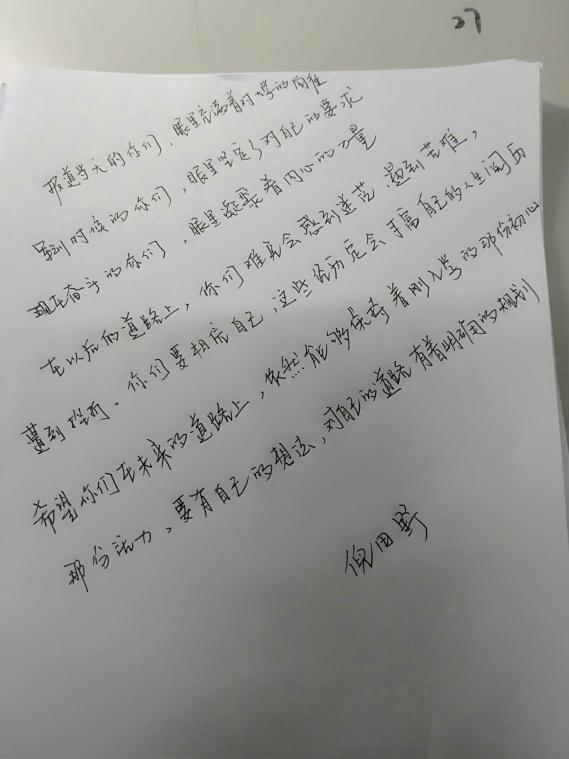 27
报道当天的你们，眼里充满着对大学的向往
军训时候的你们，眼里坚定了对自己的要求
现在奋斗的你们，眼里凝聚着内心的力量
在以后的道路上，你们难免会感到迷茫，遇到苦难，
遭到挫折。你们要相信自己，这些经历定会丰富自己的人生阅历
希望你们在未来的道路上，依然能够保存着刚入学的那份初心
那份活力，要有自己的想法，对自己的道路有着明确的规划
倪田野